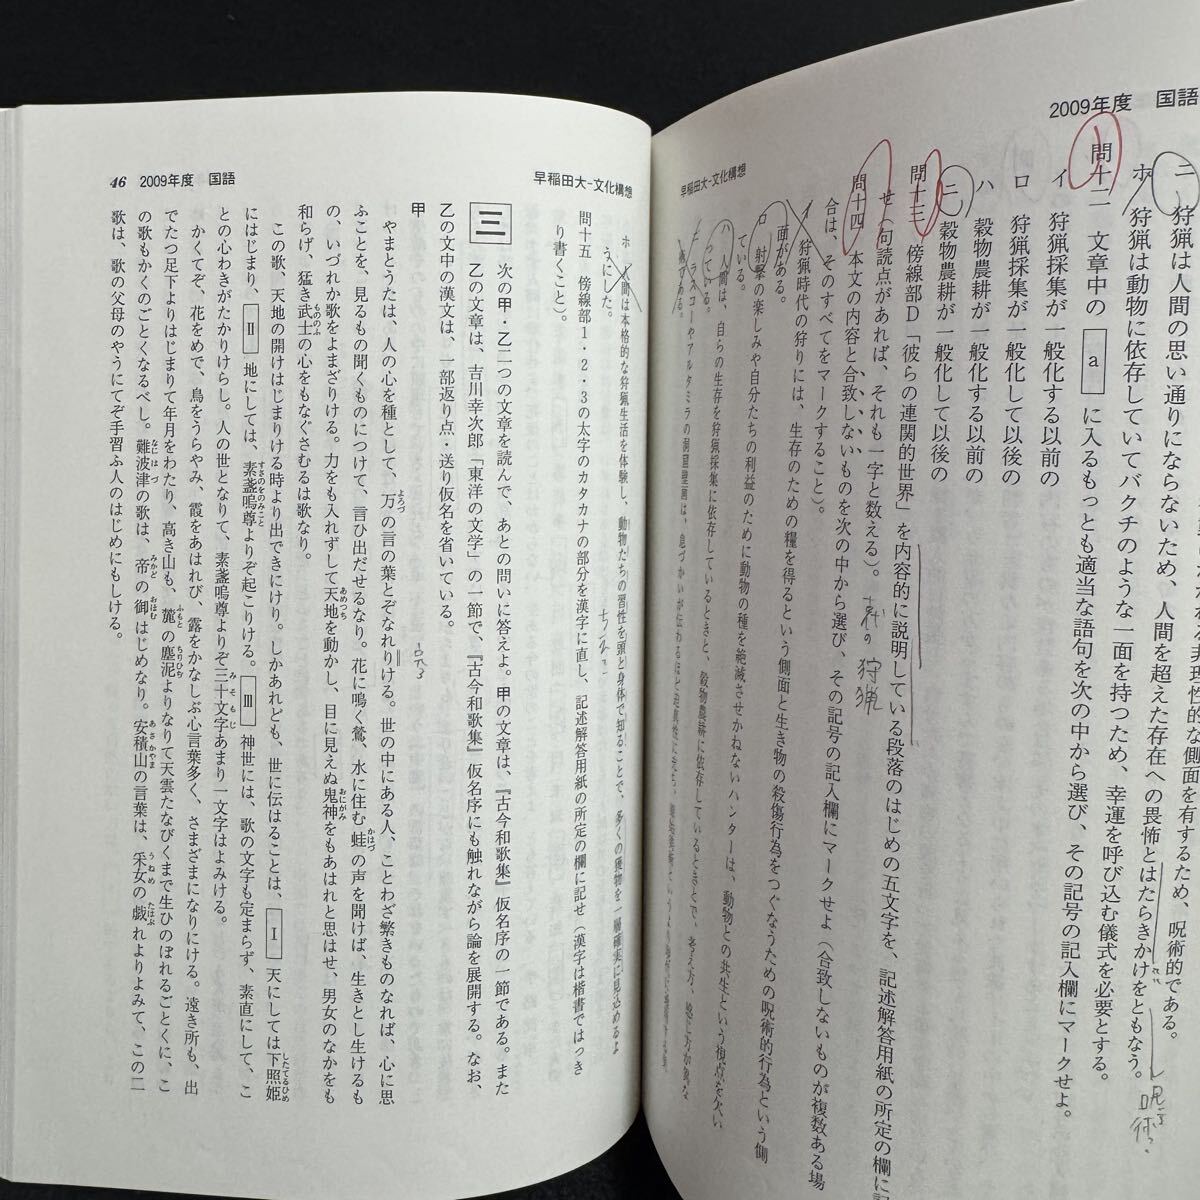 2009年度 国語
ニ 狩猟は人間の思い通りにならないため、人間を超えた存在への畏怖とはたらきかけをともなう。
ホ 狩猟は動物に依存していてバクチのような一面を持つため、幸運を呼び込む儀式を必要とする。
問十二 文章中の a に入るもっとも適当な語句を次の中から選び、その記号の記入欄にマークせよ。
イ 狩猟採集が一般化する以前の
ロ 狩猟採集が一般化して以後の
ハ 穀物農耕が一般化する以前の
ニ 穀物農耕が一般化して以後の
問十三 傍線部D「彼らの連関的世界」を内容的に説明している段落のはじめの五文字を、記述解答用紙の所定の欄に
せよ(句読点があれば、それも一字と数える)。
狩猟
問十四 本文の内容と合致しないものを次の中から選び、その記号の記入欄にマークせよ(合致しないものが複数ある場
合は、そのすべてをマークすること)。
イ 狩猟時代の狩りには、生存のための糧を得るという側面と生き物の殺傷行為をつぐなうための呪術的行為という側
面がある。
ロ 射撃の楽しみや自分たちの利益のために動物の種を絶滅させかねないハンターは、動物との共生という視点を欠い
ている。
ハ 人間は、自らの生存を狩猟採集に依存しているときと、穀物農耕に依存しているときとで、考え方、感じ方が異な
っている。
早稲田大-文化構想
早稲田大-文化構想
ホ 人間は本格的な狩猟生活を体験し、動物たちの習性を頭と身体で知ることで、多くの獲物を一層確実に見込めるよ
うにした。
問十五 傍線部1・2・3の太字のカタカナの部分を漢字に直し、記述解答用紙の所定の欄に記せ(漢字は楷書ではっき
り書くこと)。
三 次の甲・乙二つの文章を読んで、あとの問いに答えよ。甲の文章は、『古今和歌集』仮名序の一節である。また
乙の文章は、吉川幸次郎「東洋の文学」の一節で、『古今和歌集』仮名序にも触れながら論を展開する。なお、
乙の文中の漢文は、一部返り点・送り仮名を省いている。
甲
やまとうたは、人の心を種として、万の言の葉とぞなれりける。世の中にある人、ことわざ繁きものなれば、心に思
ふことを、見るもの聞くものにつけて、言ひ出だせるなり。花に鳴く鶯、水に住む蛙の声を聞けば、生きとし生けるも
の、いづれか歌をよまざりける。力をも入れずして天地を動かし、目に見えぬ鬼神をもあはれと思はせ、男女のなかをも
和らげ、猛き武士の心をもなぐさむるは歌なり。
この歌、天地の開けはじまりける時より出できにけり。しかあれども、世に伝はることは、 Ⅰ 天にしては下照姫
にはじまり、 Ⅱ 地にしては、素盞嗚尊よりぞ起こりける。 Ⅲ 神世には、歌の文字も定まらず、素直にして、こ
との心わきがたかりけらし。人の世となりて、素盞嗚尊よりぞ三十文字あまり一文字はよみける。
かくてぞ、花をめで、鳥をうらやみ、霞をあはれび、露をかなしぶ心言葉多く、さまざまになりにける。遠き所も、出
でたつ足下よりはじまりて年月をわたり、高き山も、麓の塵泥よりなりて天雲たなびくまで生ひのぼれるごとくに、こ
の歌もかくのごとくなるべし。難波津の歌は、帝の御はじめなり。安積山の言葉は、采女の戯れよりよみて、この二
歌は、歌の父母のやうにてぞ手習ふ人のはじめにもしける。
46 2009年度 国語